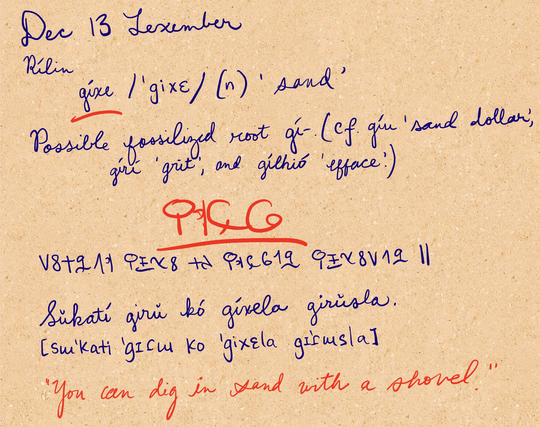 Dec 13 Lexember
Rílin
gíxe /'gixɛ/ (n) 'sand'
Possible fossilized root gí-. (cf. gíu 'sand dollar',
girí 'grit', and gilhió 'efface'.)
Sŭkatí girŭ kó gíxela girŭsla.
[sɯ'kati 'gɪɾɯ ko 'gixɛla gɪ'ɾɯsla]
"You can dig in sand with a shovel."